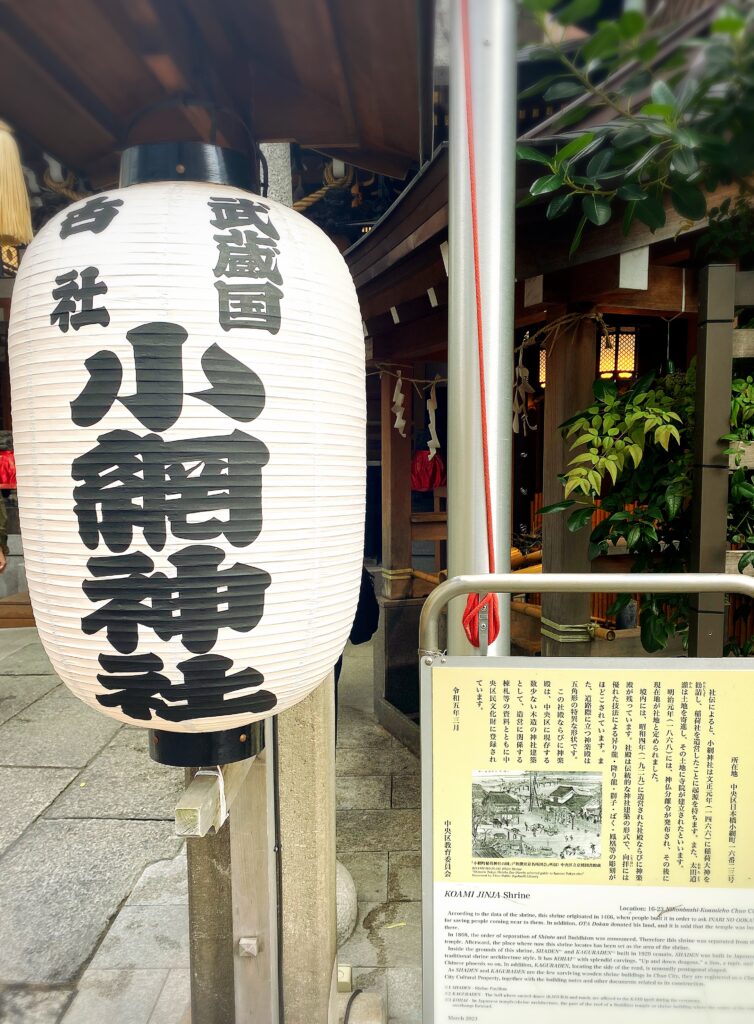 武蔵国
古社
小網神社
所在地 中央区日本橋小網町一六番二三号
社伝によると、小網神社は文正元年(一四六六)に稲荷大神を
勧請し、稲荷社を造営したことに起源を持ちます。また、太田道
灌は土地を寄進し、その土地に寺院が建立されたといいます。
明治元年(一八六八)には、神仏分離令が発布され、その後に
現在地が社地と定められました。
境内には、昭和四年(一九二九)に造営された社殿ならびに神楽
殿が残っています。社殿は伝統的な神社建築の形式で、向拝には
優れた技法による昇り龍・降り龍・獅子・ばく・鳳凰等の彫刻が
ほどこされています。ま
た、道路際に立つ神楽殿は
五角形の特別な形状です。
この社殿ならびに神楽
殿は、中央区に現存する
数少ない木造の神社建築
として、造営に関係する
棟札等の資料とともに中
央区民文化財に登録され
ています。
令和五年三月
中央区教育委員会
KOAMI JINJA-Shrine
Location: 16-23
According to the data of the shrine, this shrine originated in 1466, when people built it in order to ask INARI NO OOKA
for saving people coming near to them. In addition, OTA Dokan donated his land, and it is said that the temple was bu
there.
In 1868, the order of separation of Shinto and Buddhism was announced. Therefore this shrine was separated from t
temple. Afterward, the place where now this shrine locates has been set as the area of the shrine.
Inside the grounds of this shrine, SHADEN and KAGURADEN built in 1929 remain. SHADEN was built in Japanes
traditional shrine architecture style. It has KOHAI with splendid carvings, "Up and down dragons,"
Chinese phoenix so on. In addition, KAGURADEN, locating the side of the road, is unusually pentagonal shaped.
As SHADEN and KAGURADEN are the few surviving wooden shrine buildings in Chuo City, they are registered as a
City Cultural Property, together with the building notes and other documents related to its construction.
March 2023